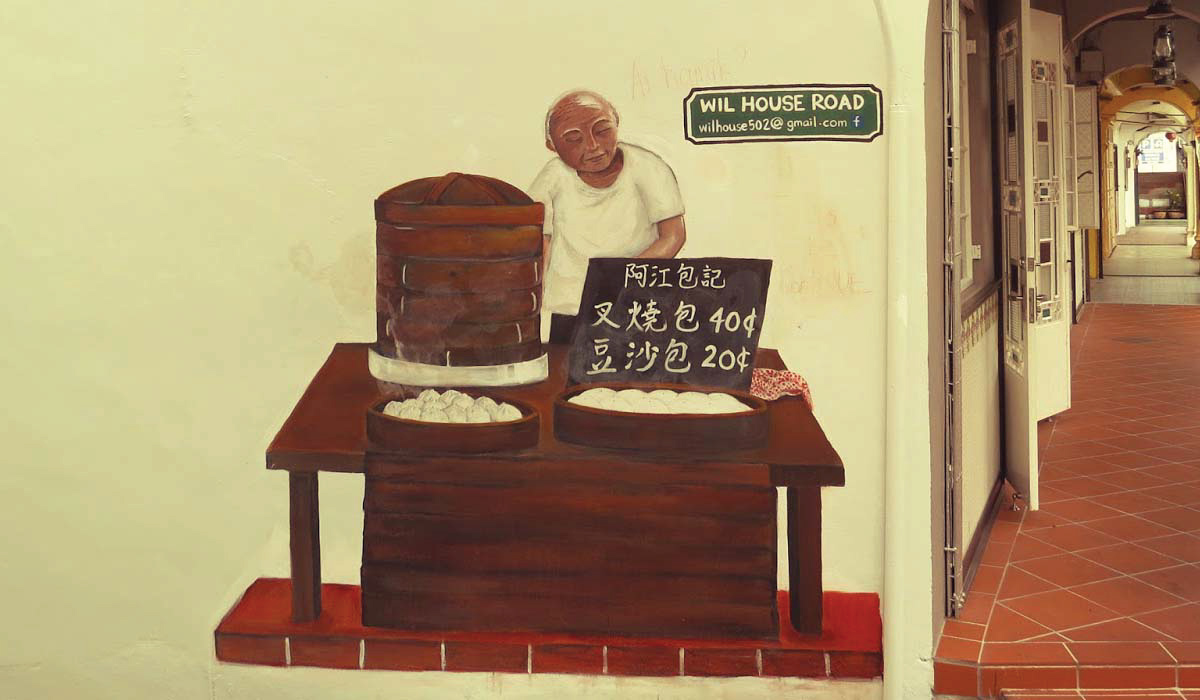 WIL HOUSE ROAD
wilhouse502@gmail.com f
阿江包記
叉燒包 40¢
豆沙包 20¢